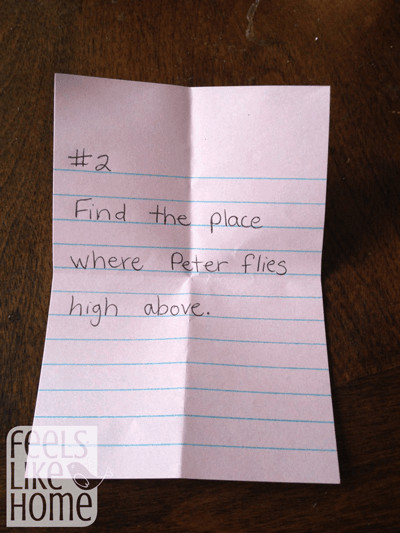 #2
Find the place
where Peter flies
high above.
FEELS
LIKE
HOME